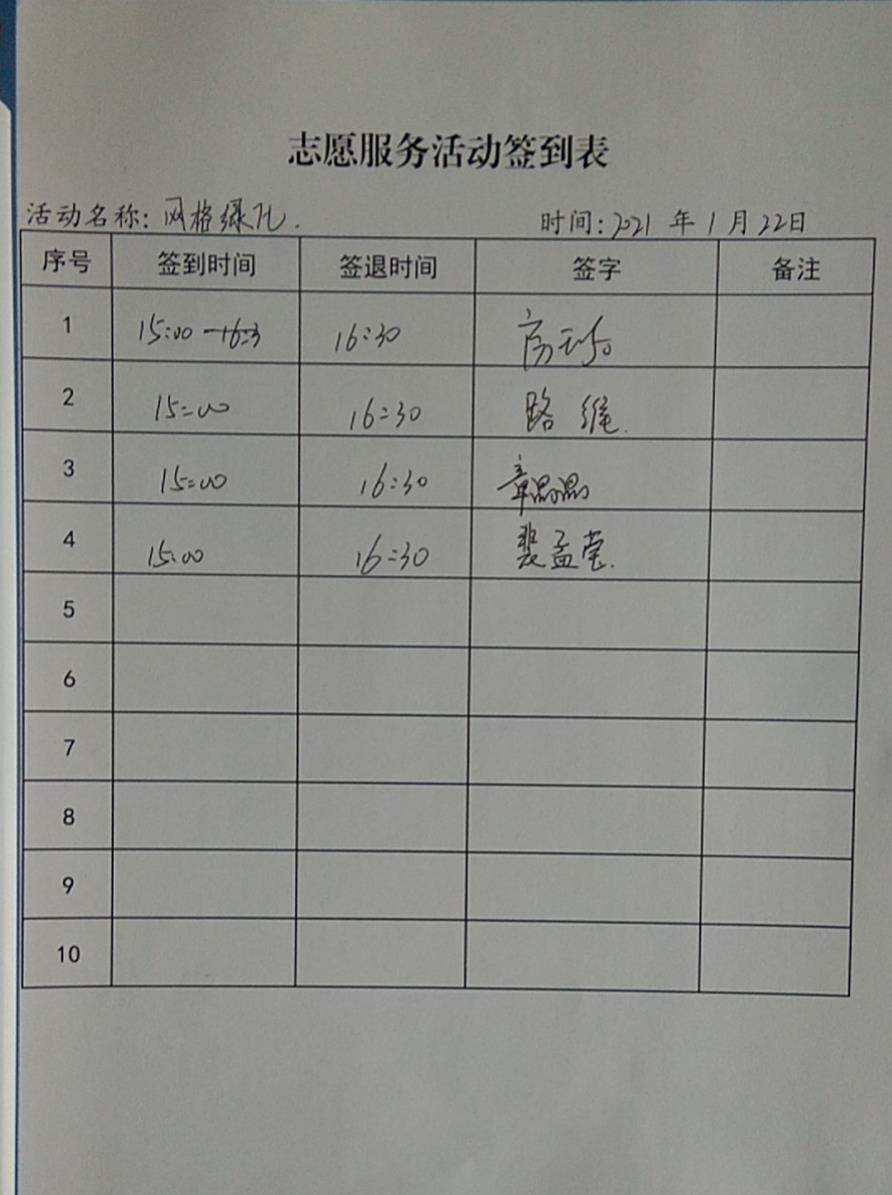 志愿服务活动签到表
活动名称: 网格绿化. 时间: 2021 年 1 月 22日
序号 签到时间 签退时间 签字 备注
1 15:00 16:30
2 15:00 16:30 路
3 15:00 16:30 章晶晶
4 15:00 16:30 裴孟莹.
5
6
7
8
9
10